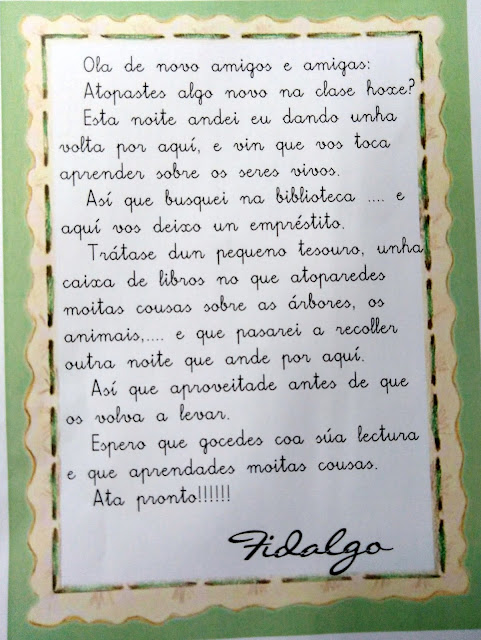 Ola de novo amigos e amigas:
Atopastes algo novo na clase hoxe?
Esta noite andei eu dando unha
volta por aquí, e vin que vos toca
aprender sobre os seres vivos.
Así que busquei na biblioteca .... e
aquí vos deixo un empréstito.
Trátase dun pequeno tesouro, unha
caixa de libros no que atoparedes
moitas cousas sobre as árbores, os
animais,.... e que pasarei a recoller
outra noite que ande por aquí.
Así que aproveitade antes de que
os volva a levar.
Espero que gocedes coa súa lectura
e que aprendades moitas cousas.
Ata pronto!!!!!!
Fidalgo